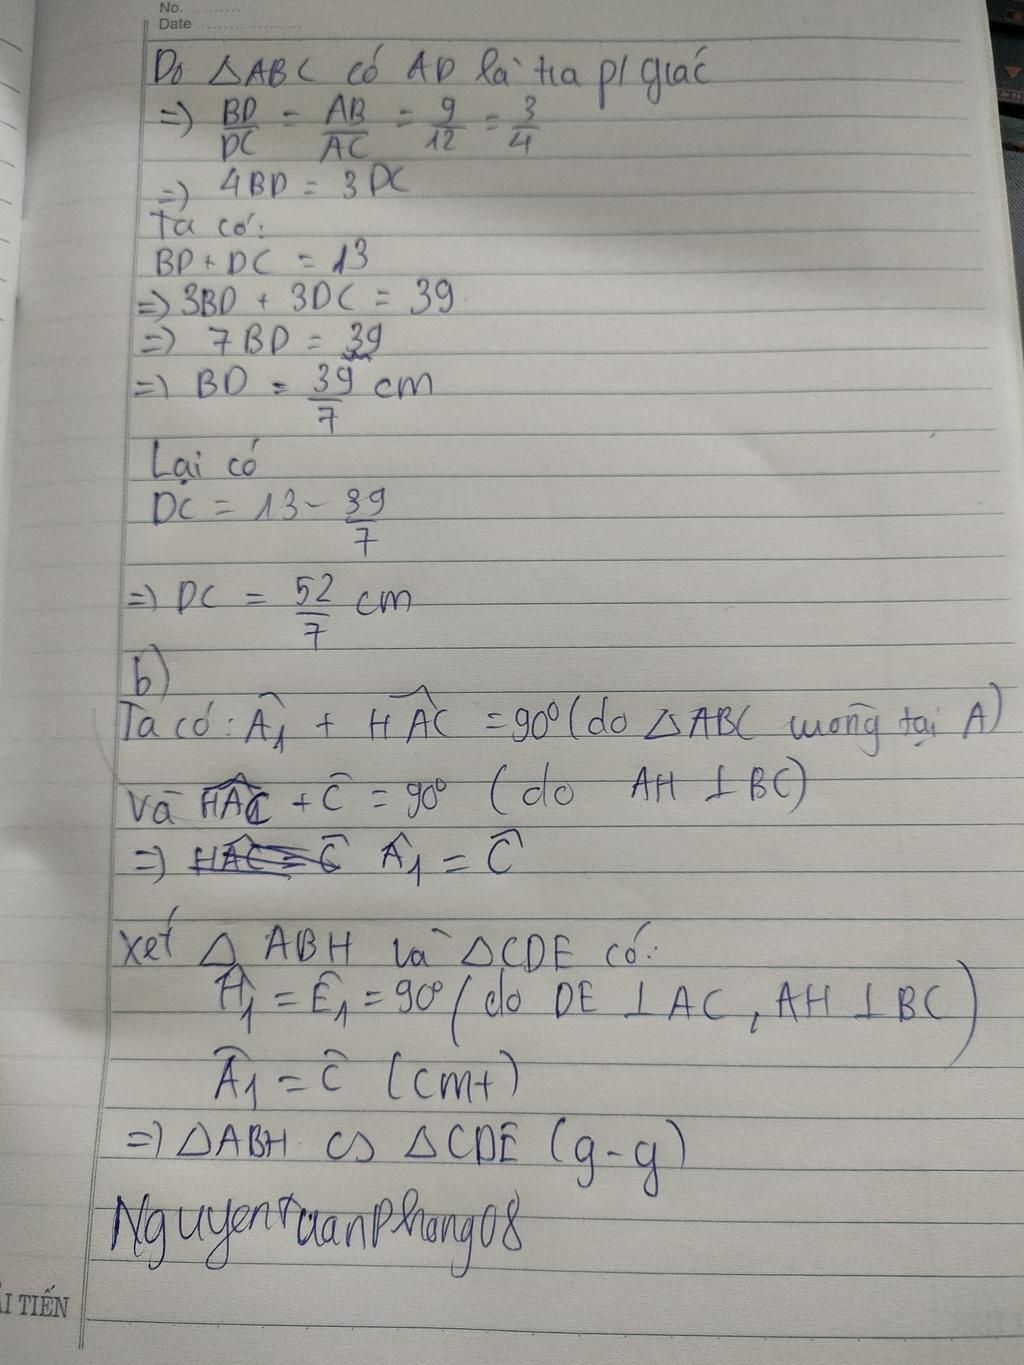 No. ..........
Date ..........................
Do △ABC có AD là tia p/ giác
=> BD/DC = AB/AC = 9/12 = 3/4
=> 4BD = 3DC
Ta có:
BD + DC = 13
=> 3BD + 3DC = 39
=> 7BD = 39
=> BD = 39/7 cm
Lại có
DC = 13 - 39/7
=> DC = 52/7 cm
b)
Ta có: Â₁ + HAC̑ = 90° (do △ABC vuông tại A)
Và HAC̑ + Ĉ = 90° (do AH ⊥ BC)
=> Â₁ = Ĉ
Xét △ ABH và △CDE có:
Ĥ₁ = Ê₁ = 90° (do DE ⊥ AC, AH ⊥ BC)
Â₁ = Ĉ (cmt)
=> △ABH ∽ △CDE (g-g)
NguyentuanPhong08
ẢI TIẾN